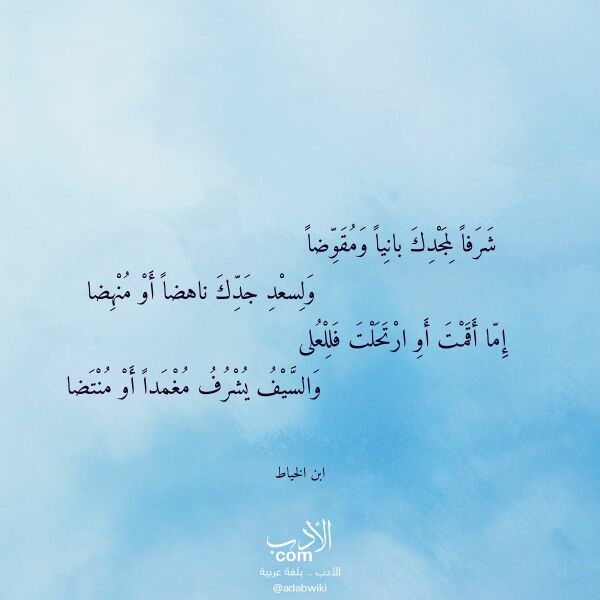 شَرَفاً لِمَجْدِكَ بانِياً وَمُقَوِّضاً
وَلِسعْدِ جَدِّكَ ناهضاً أَوْ مُنْهِضا
إِمّا أَقَمْتَ أَوِ ارْتَحَلْتَ فَلِلْعُلى
وَالسَّيْفُ يُشْرُفُ مُغْمَداً أَوْ مُنْتَضا
ابن الخياط
الأدب
com
الأدب .. بلغة عربية
@adabwiki